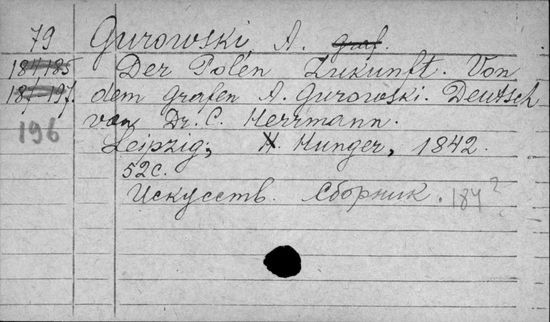 79 Gurowski, A. Graf.
184,185 Der Polen Zukunft. Von
187-197. dem Grafen A. Gurowski. Deutsch
196 von Dr. C. Herrmann.
Leipzig, H. Hunger, 1842.
52c.
Искусств. Сборник. 184²